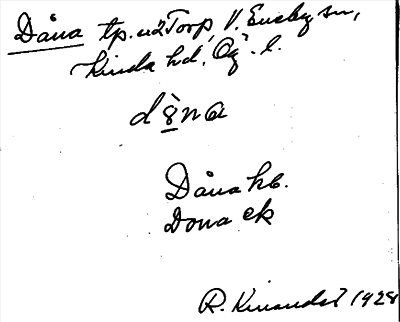 Dåna tp. u. Torp, V. Eneby sn,
Kinda hd, Ög. l.
d8̀na
Dåna hb.
Dona ek
R. Kinander 1928